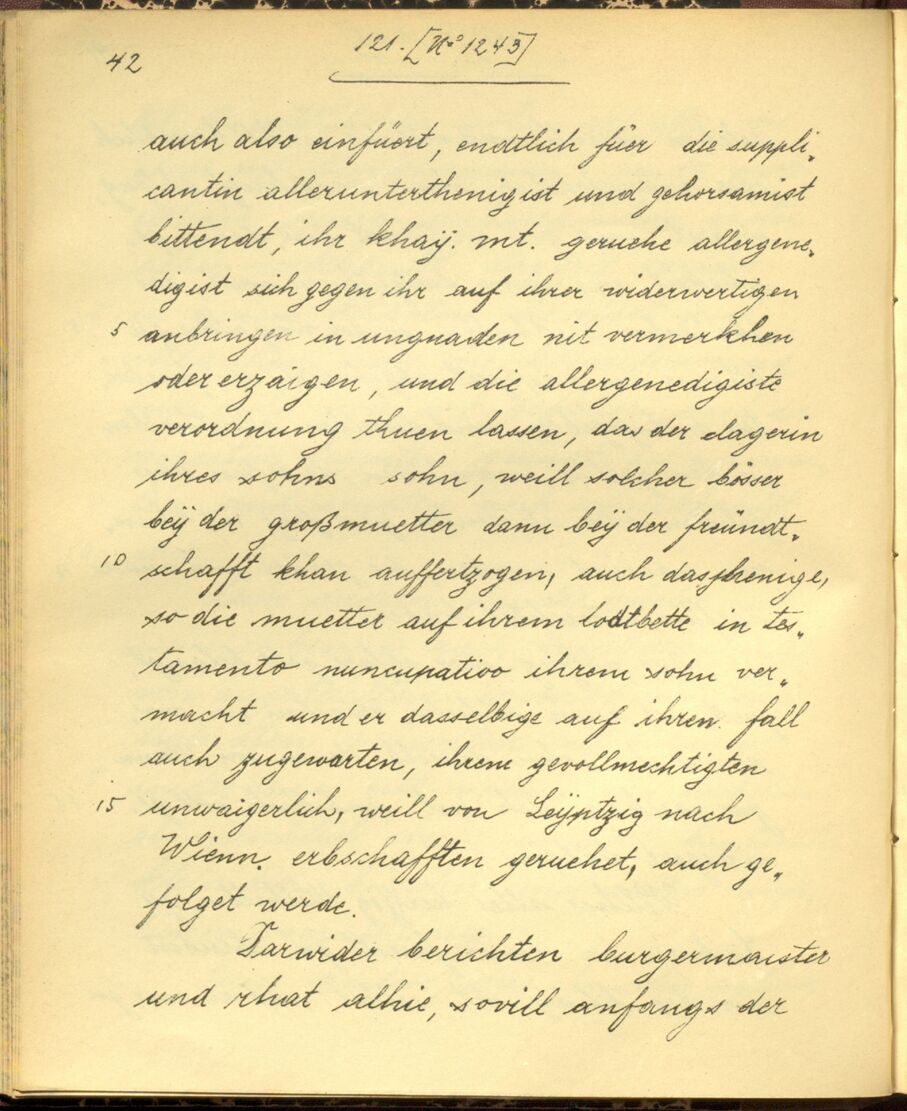 42
121. [No 1243]
auch also einfüert, endtlich füer die suppli„
cantin allerunterthenigist und gehorsamist
bittendt, ihr khaÿ. mt. geruche allergene„
digist sich gegen ihr auf ihrer widerwertigen
5 anbringen in ungnaden nit vermerkhen
oder erzaigen, und die allergenedigiste
verordnung thuen lassen, das der clagerin
ihres sohns sohn, weill solcher bösser
beÿ der großmuetter dann beÿ der freündt„
10 schafft khan aufferzogen, auch dasjhenige,
so die muetter auf ihrem todtbette in tes„
tamento nuncupativo ihrem sohn ver„
macht und er dasselbige auf ihren fall
auch zugewarten, ihrem gevollmechtigten
15 unwaigerlich, weill von Leÿptzig nach
Wienn erbschafften geruehet, auch ge„
folget werde.
Darwider berichten burgermaister
und rhat alhie, sovill anfangs der